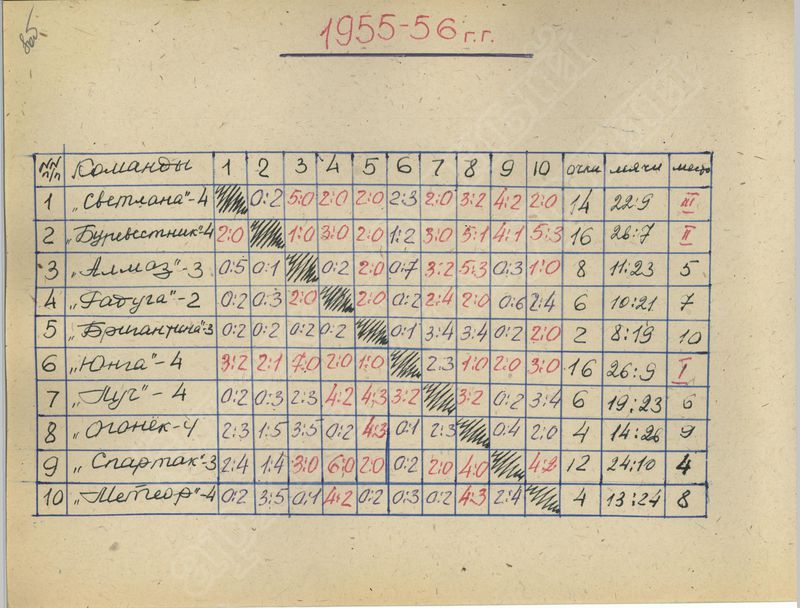 1955-56 г.г.
№№ п/п Команды 1 2 3 4 5 6 7 8 9 10 очки мячи место
1 „Светлана"-4 0:2 5:0 2:0 2:0 2:3 2:0 3:2 4:2 2:0 14 22:9 III
2 „Буревестник"-4 2:0 1:0 3:0 2:0 1:2 3:0 5:1 4:1 5:3 16 26:7 II
3 „Алмаз"-3 0:5 0:1 0:2 2:0 0:7 3:2 5:3 0:3 1:0 8 11:23 5
4 „Радуга"-2 0:2 0:3 2:0 2:0 0:2 2:4 2:0 0:6 2:4 6 10:21 7
5 „Бригантина"-3 0:2 0:2 0:2 0:2 0:1 3:4 3:4 0:2 2:0 2 8:19 10
6 „Юнга"-4 3:2 2:1 7:0 2:0 1:0 2:3 1:0 2:0 3:0 16 26:9 I
7 „Луч"-4 0:2 0:3 2:3 4:2 4:3 3:2 3:2 0:2 3:4 6 19:23 6
8 „Огонёк-4 2:3 1:5 3:5 0:2 4:3 0:1 2:3 0:4 2:0 4 14:26 9
9 „Спартак"-3 2:4 1:4 3:0 6:0 2:0 0:2 2:0 4:0 4:2 12 24:10 4
10 „Метеор"-4 0:2 3:5 0:1 4:2 0:2 0:3 0:2 4:3 2:4 4 13:24 8